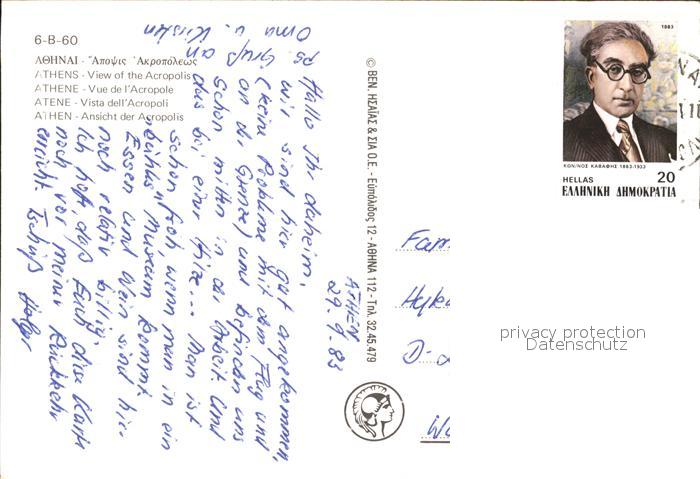 6-B-60
ΑΘΗΝΑΙ - Ἄποψις Ἀκροπόλεως
ATHENS - View of the Acropolis
ATHENE - Vue de l'Acropole
ATENE - Vista dell'Acropoli
ATHEN - Ansicht der Acropolis
ATHEN
29.9.83
Hallo Ihr daheim,
wir sind hier gut angekommen,
(keine Probleme mit dem Flug und
an der Grenze) und befinden uns
schon mitten in der Arbeit. Und
das bei einer Hitze... Man ist
schon froh, wenn man in ein
"kühles" Museum kommt.
Essen und Wein sind hier
noch relativ billig.
Ich hoff, daß Euch diese Karte
noch vor meiner Rückkehr
erreicht. Tschüß Holger
ps. Gruß an
Oma u. Kirsten
© ΒΕΝ. ΗΣΑΪΑΣ & ΣΙΑ Ο.Ε. - Εὐπόλιδος 12 - ΑΘΗΝΑ 112 - Τηλ. 32.45.479
1983
ΚΩΝ/ΝΟΣ ΚΑΒΑΦΗΣ 1863-1933
HELLAS 20
ΕΛΛΗΝΙΚΗ ΔΗΜΟΚΡΑΤΙΑ
Fam
D-
privacy protection
Datenschutz